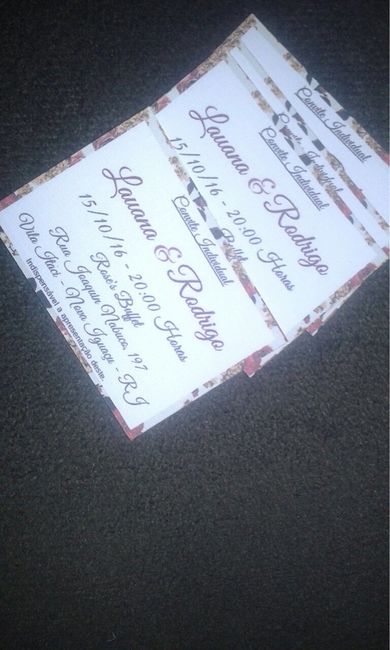 Convite Individual
Lauana & Rodrigo
15/10/16 - 20:00 Horas
Rosé's Buffet
Rua Joaquim Nabuco, 197
Vila Iracì - Nova Iguaçu - RJ
Indispensável a apresentação deste.
Convite Individual
Lauana & Rodrigo
15/10/16 - 20:00 Horas
Buffet
Convite Individual
Convite Individual